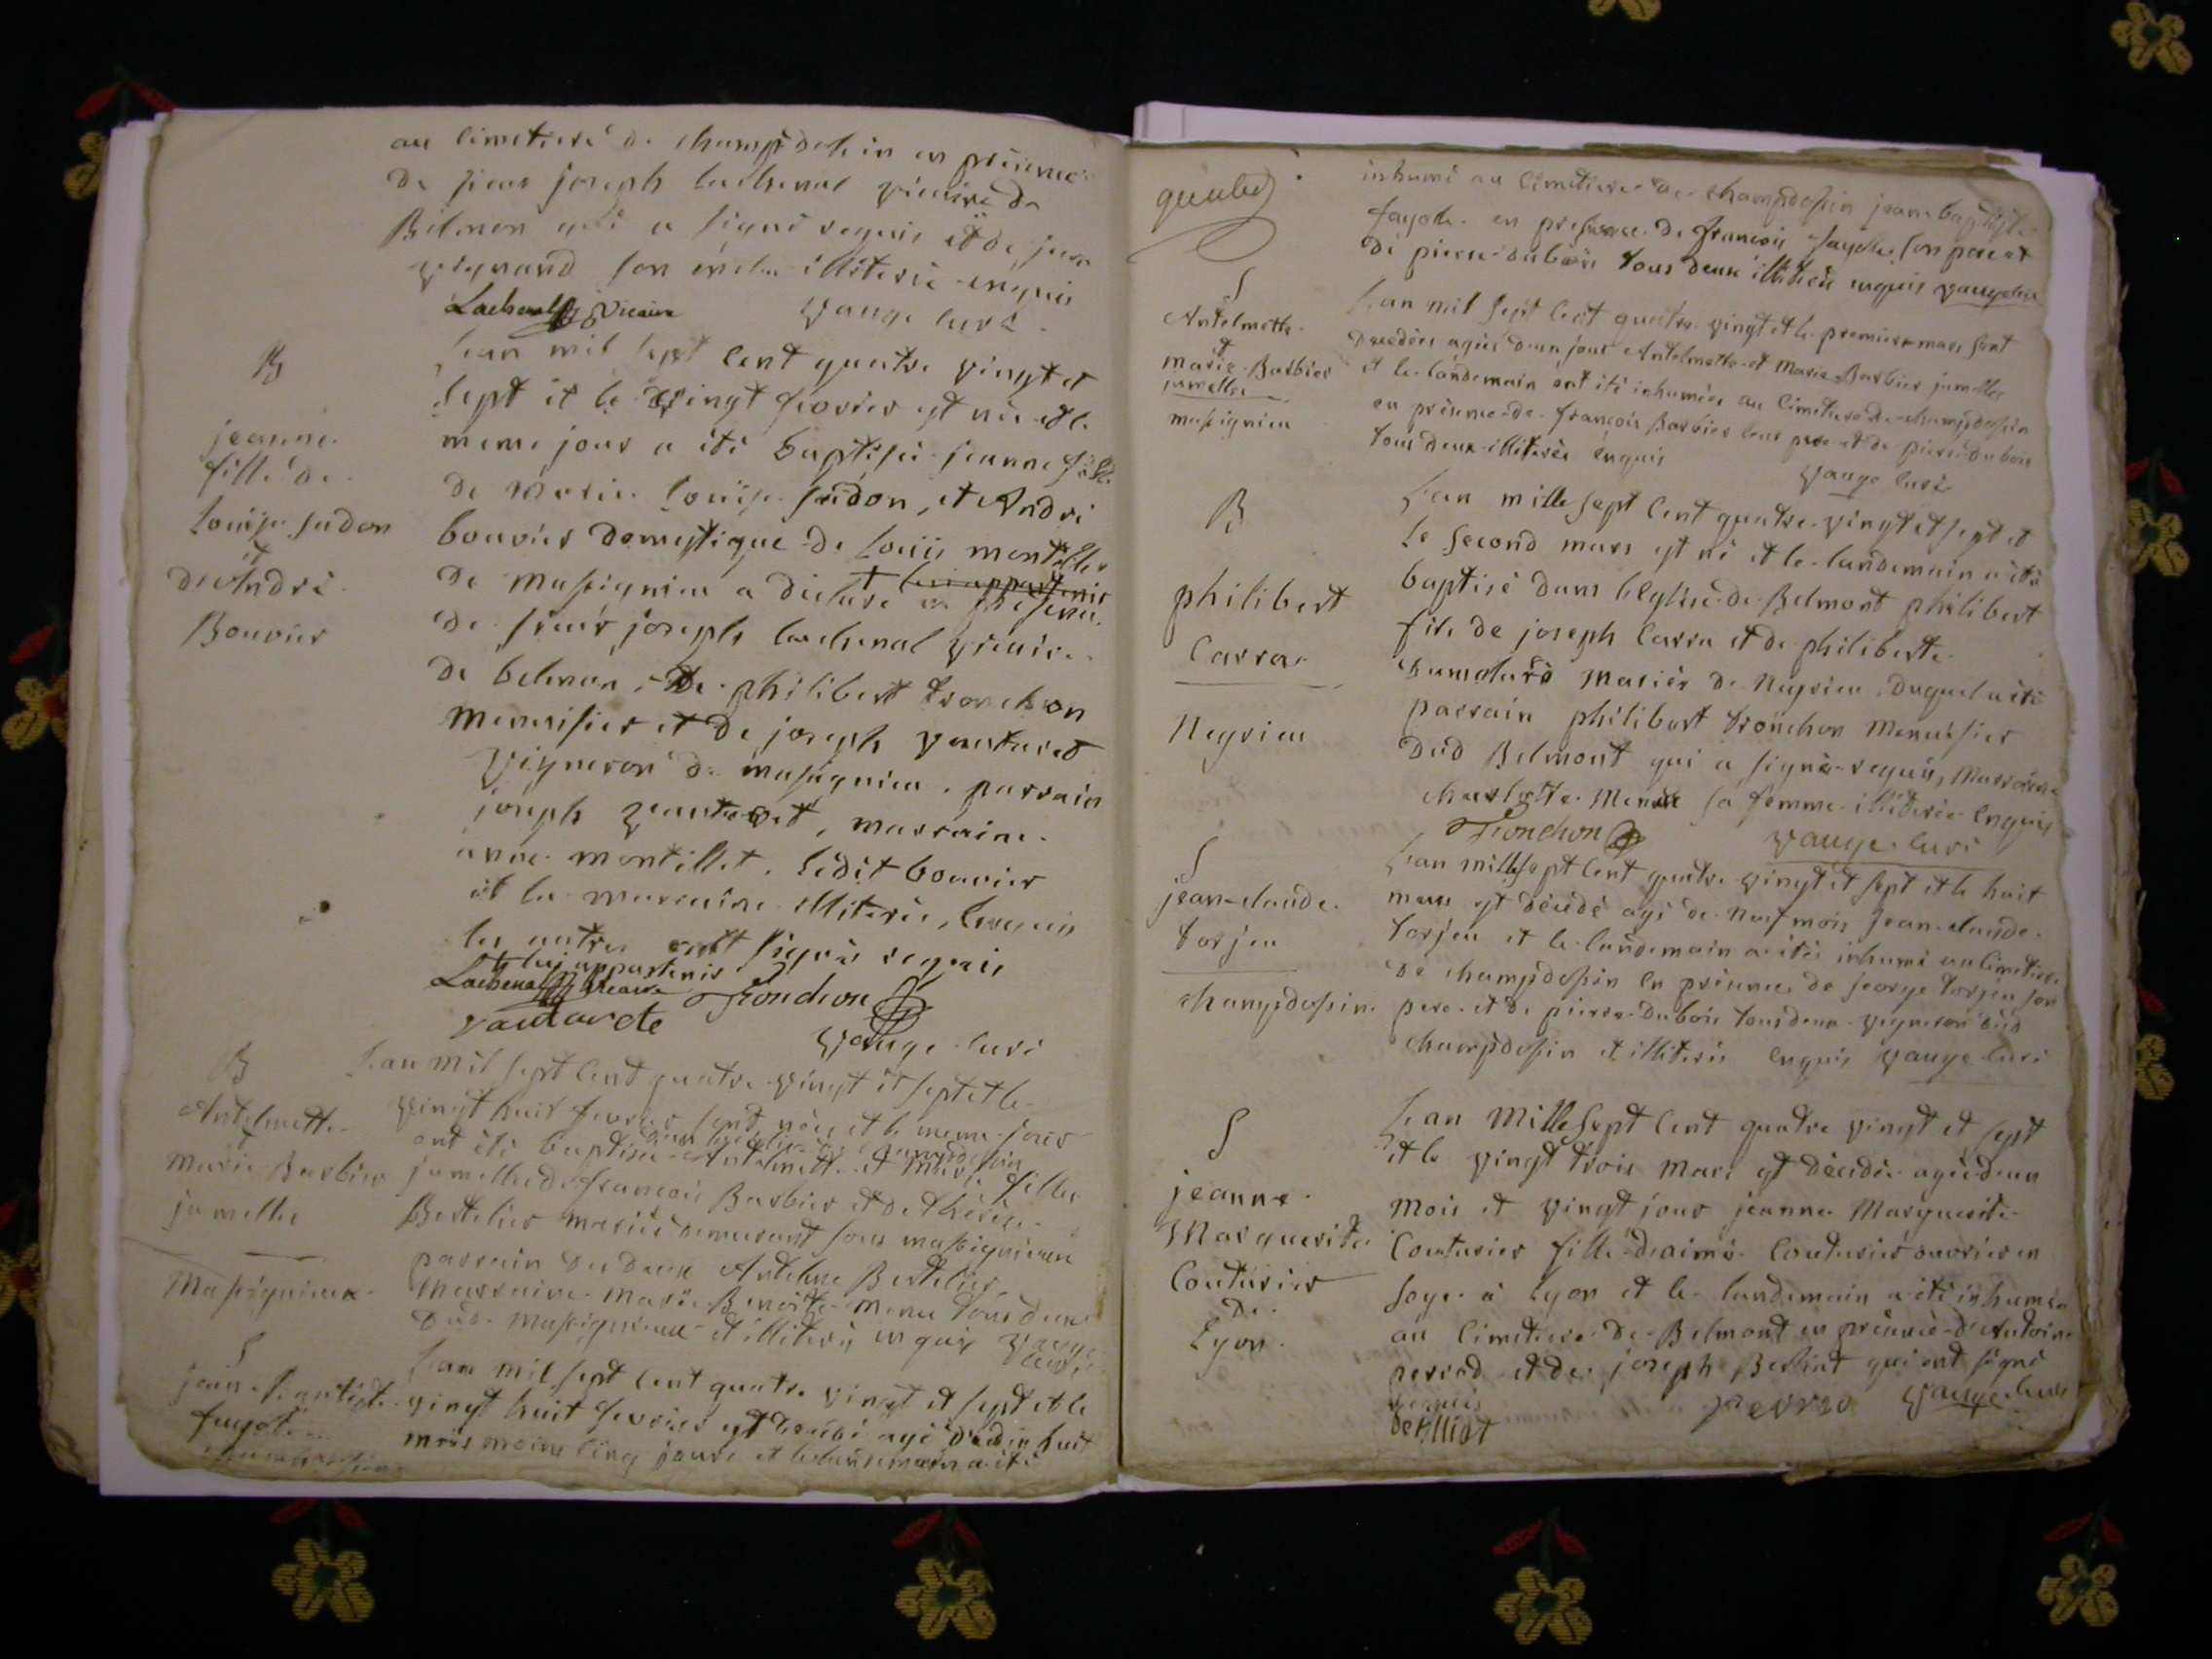 au cimetiere de champdosin en présence
de sieur joseph lachenal vicaire de
Belmon qui a signé requis et de jean
vignand son oncle illiteré enquis
Lachenal Vicaire vauge curé
B
jeanne
fille de
louise sudon
et
d'Andri
Bouvier
Lan mil sept cent quatre vingt et
sept et le vingt fevrier est née et le
meme jour a été baptisée jeanne fille
de marie louise sudon, et Andri
bouvier domestique de louis montillet
de massignieu a declaré + en presence
de sieur joseph lachenal vicaire
de belmon, de philibert tronchon
menuisier et de joseph vautaret
vigneron de massignieu. parrain
joseph vautaret, marraine
anne montillet. ledit bouvier
et la marraine illiterés, enquis
les autres ont signés requis
+ lui appartenir
Lachenal Vicaire Tronchon
vautarete vauge curé
B
Antelmette
et
marie Barbier
jumelles
Massignieux
Lan mil sept cent quatre vingt et sept et le
vingt huit fevrier sont nées et le meme jour
ont été baptisée dans leglise de champdosin Antelmette et Marie filles
jumelles de françois Barbier et de therese
Bertelier mariés demeurant sous massignieux
parrain des deux Antelme Bertelier,
marraine marie Benoite menu tous deux
dud. massignieux et illiterés enquis vauge
curé
S
jean Baptiste
fayole
Lan mil sept cent quatre vingt et sept et le
vingt huit fevrier est decédé agé d'edix huit
mois moins cinq jours et le landemain a été
inhumé au cimetiere de champdosin jean baptiste
fayole en presence de françois fayolle son pere et
de pierre dubois tous deux illiterés enquis vauge curé
S
Antelmette
et
marie Barbier
jumelles
massignieu
Lan mil sept cent quatre vingt et le premier mars sont
decedées agées d'un jour Antelmette et Marie Barbier jumelles
et le landemain ont été inhumées au cimetiere de champdosin
en présence de françois Barbier leur pere et de pierre dubois
tous deux illiterés enquis vauge curé
B
philibert
Carra
Negrieu
Lan mille sept cent quatre vingt et sept et
le second mars est né et le landemain a été
baptisé dans léglise de Belmont philibert
fils de joseph Carra et de philiberte
mariés de Negrieu. duquel a été
parrain philibert tronchon Menuisier
dud Belmont qui a signé requis, Marraine
charlotte sa femme illiterée enquis
Tronchon vauge curé
S
jean-claude
torjeu
champdosin
Lan mille sept cent quatre vingt et sept et le huit
mars est décédé agé de neuf mois jean-claude
torjeu et le landemain a été inhumé au cimetiere
de champdosin en présence de george torjeu son
pere et de pierre dubois tous deux vigneron dud
champdosin et illiterés enquis vauge curé
S
jeanne
Marguerite
Couturier
de
Lyon
Lan Mille sept cent quatre vingt et sept
et le vingt trois mars est décédée agée d'un
mois et vingt jour jeanne Marguerite
Couturier fille d'aimé Couturier ouvrier en
soye à Lyon et le landemain a été inhumée
au cimetiere de Belmont en présence d'Antoine
perrod et de joseph Berliot qui ont signé
requis
perro vauge curé